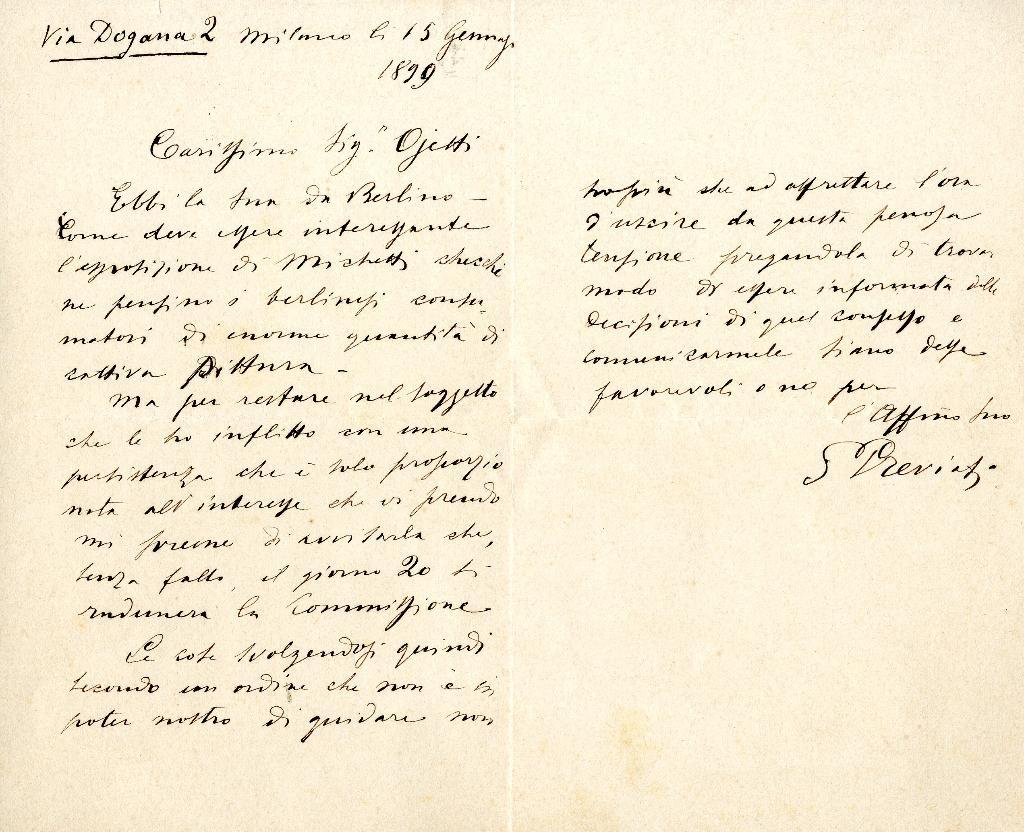 Via Dogana 2 Milano li 15 Gennajo
1899
Carissimo Sigr. Ojetti
Ebbi la sua da Berlino –
Come deve essere interessante
l'esposizione di Michetti checchè
ne pensino i berlinesi consu-
matori di enorme quantità di
cattiva Pittura –
Ma per restare nel soggetto
che le ho inflitto con una
persistenza che è solo proporzio
nata all'interesse che vi prendo
mi preme di avvisarla che,
senza fallo, il giorno 20 si
radunerà la Commissione
Le cose svolgendosi quindi
secondo un ordine che non è in
poter nostro di guidare non
ho più che ad affrettare l'ora
d'uscire da questa penosa
tensione pregandola di trovar
modo di essere informata delle
decisioni di quel consesso e
comunicarmele siano desse
favorevoli o no per
l'Affmo suo
G Previati